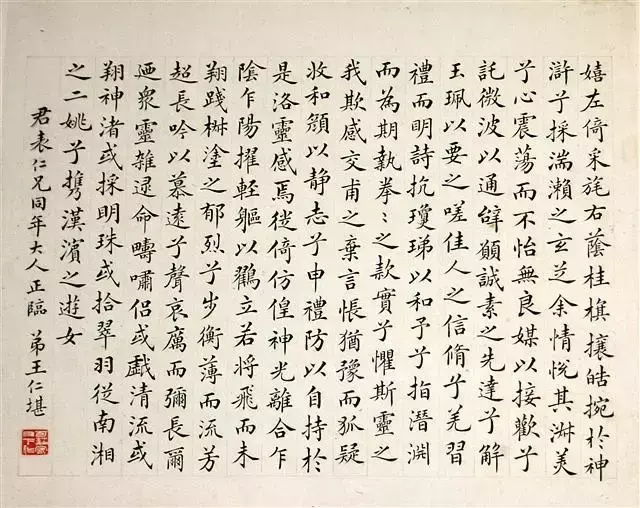 嬉左倚采旄右蔭桂旗攘皓捥於神
滸兮採湍瀨之玄芝余情悅其淑美
兮心震蕩而不怡無良媒以接歡兮
託微波以通辭願誠素之先達兮解
玉珮以要之嗟佳人之信脩兮羌習
禮而明詩抗瓊珶以和予兮指潛淵
而為期執拳〻之款實兮懼斯靈之
我欺感交甫之棄言悵猶豫而狐疑
收和顏以静志兮申禮防以自持於
是洛靈感焉徙倚仿偟神光離合乍
陰乍陽擢輕軀以鸛立若將飛而未
翔踐椒塗之郁烈兮步衡薄而流芳
超長吟以慕遠兮聲哀厲而彌長爾
迺衆靈雜遝命疇嘯侶或戲清流或
翔神渚或採明珠或拾翠羽從南湘
之二姚兮携漢濱之遊女
君表仁兄同年大人正臨 弟王仁堪